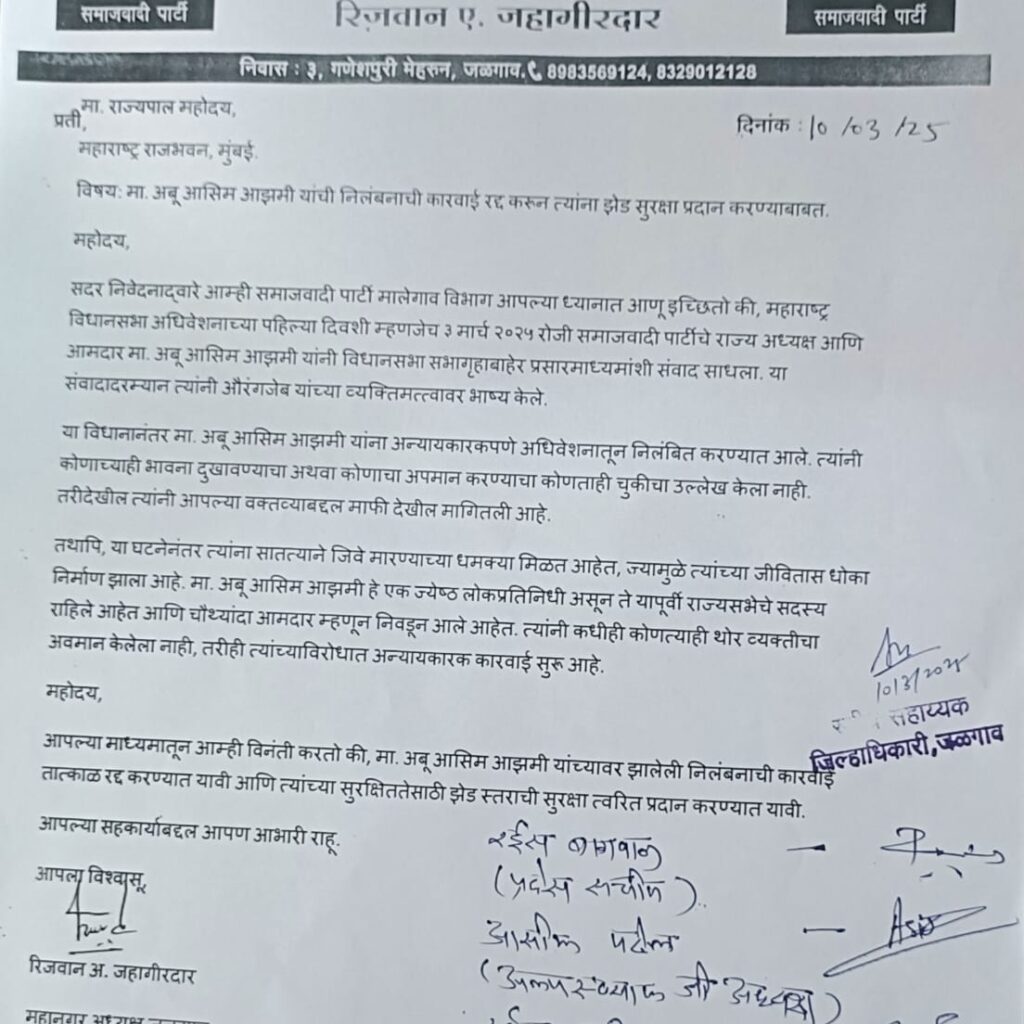 समाजवादी पार्टी
रिज़वान ए. जहागीरदार
समाजवादी पार्टी
निवास : ३, गणेशपुरी मेहरुन, जळगाव. 8983569124, 8329012128
मा. राज्यपाल महोदय,
प्रती,
दिनांक : 10 /03 /25
महाराष्ट्र राजभवन, मुंबई.
विषय: मा. अबू आसिम आझमी यांची निलंबनाची कारवाई रद्द करून त्यांना झेड सुरक्षा प्रदान करण्याबाबत.
महोदय,
सदर निवेदनाद्वारे आम्ही समाजवादी पार्टी मालेगाव विभाग आपल्या ध्यानात आणू इच्छितो की, महाराष्ट्र
विधानसभा अधिवेशनाच्या पहिल्या दिवशी म्हणजेच ३ मार्च २०२५ रोजी समाजवादी पार्टीचे राज्य अध्यक्ष आणि
आमदार मा. अबू आसिम आझमी यांनी विधानसभा सभागृहाबाहेर प्रसारमाध्यमांशी संवाद साधला. या
संवादादरम्यान त्यांनी औरंगजेब यांच्या व्यक्तिमत्त्वावर भाष्य केले.
या विधानानंतर मा. अबू आसिम आझमी यांना अन्यायकारकपणे अधिवेशनातून निलंबित करण्यात आले. त्यांनी
कोणाच्याही भावना दुखावण्याचा अथवा कोणाचा अपमान करण्याचा कोणताही चुकीचा उल्लेख केला नाही.
तरीदेखील त्यांनी आपल्या वक्तव्याबद्दल माफी देखील मागितली आहे.
तथापि, या घटनेनंतर त्यांना सातत्याने जिवे मारण्याच्या धमक्या मिळत आहेत, ज्यामुळे त्यांच्या जीवितास धोका
निर्माण झाला आहे. मा. अबू आसिम आझमी हे एक ज्येष्ठ लोकप्रतिनिधी असून ते यापूर्वी राज्यसभेचे सदस्य
राहिले आहेत आणि चौथ्यांदा आमदार म्हणून निवडून आले आहेत. त्यांनी कधीही कोणत्याही थोर व्यक्तीचा
अवमान केलेला नाही, तरीही त्यांच्याविरोधात अन्यायकारक कारवाई सुरू आहे.
10/3/2025
सहाय्यक
जिल्हाधिकारी, जळगाव
महोदय,
आपल्या माध्यमातून आम्ही विनंती करतो की, मा. अबू आसिम आझमी यांच्यावर झालेली निलंबनाची कारवाई
तात्काळ रद्द करण्यात यावी आणि त्यांच्या सुरक्षिततेसाठी झेड स्तराची सुरक्षा त्वरित प्रदान करण्यात यावी.
आपल्या सहकार्याबद्दल आपण आभारी राहू.
रईस बागवान
(प्रदेश सचीव)
आपला विश्वासू,
आसीफ पटेल
(अल्पसंख्याक जी अध्यक्ष)
रिजवान अ. जहागीरदार
महानगर अध्यक्ष